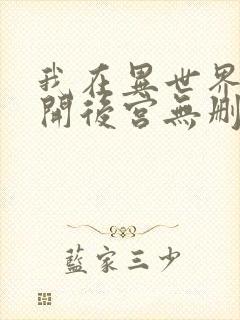 我在異世界
開後宮無刪
藍家三少